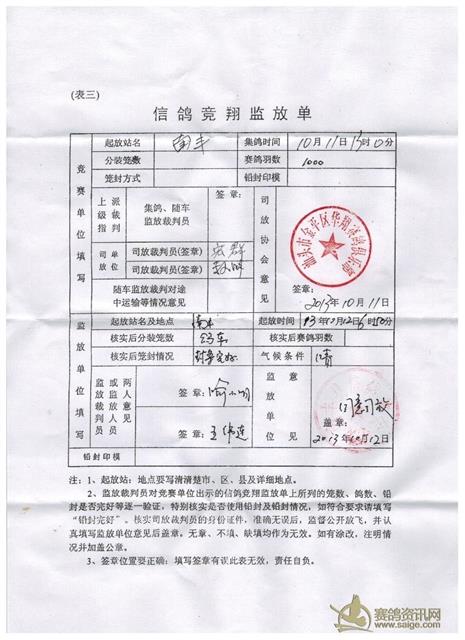 (表三)
信鸽竞翔监放单
竞赛单位填写
起放站名 南丰 集鸽时间 10月11日15时0分
分装笼数 赛鸽羽数 1000
笼封方式 铅封印模
上级指派裁判 集鸽、随车监放裁判员 签章:
司放单位 司放裁判员(签章)
司放裁判员(签章)
随车监放裁判对途中运输等情况意见
司放协会意见
汕头市金平区华翔赛鸽俱乐部
签章:
2013年10月11日
监放单位填写
起放站名及地点 南丰 起放时间
核实后分装笼数 核实后赛鸽羽数
核实后笼封情况 封条完好 气候条件 晴
监放裁判员或监放人员两人意见
签章: 喻小明
签章: 王伟连
监放单位意见
同意司放
盖章:
2013年10月12日
铅封印模
注:1、起放站:地点要写清清楚市、区、县及详细地点。
2、监放裁判员对竞赛单位出示的信鸽竞翔监放单上所列的笼数、鸽数、铅
封是否完好等逐一验证,特别核实是否使用铅封及铅封情况,如符合要求请填写
“铅封完好”。核实司放裁判员的身份证件,准确无误后,监督公开放飞,并认
真填写监放单位意见后盖章。无章、不填、缺填均作为无效。如有涂改,注明情
况并加盖公章。
3、签章位置要正确:填写签章有误此表无效,责任自负。
赛鸽资讯网
www.saige.com